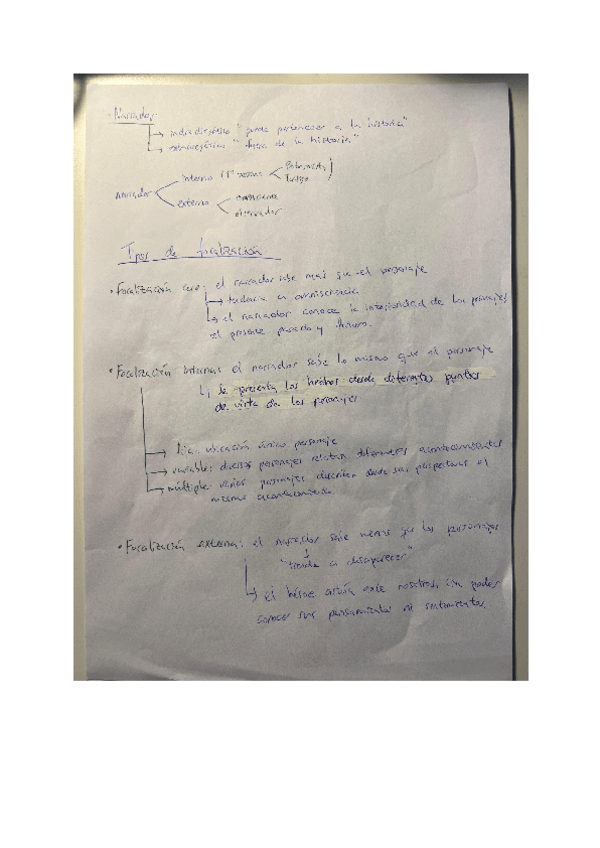 · Narrador
intradiegético "puede pertenecer a la historia"
"fuera de la historia"
narrador
interno 1ª
Protagonista
Testigo
externo
omnisciente
observador
Tipos de focalización
• Focalización cero: el narrador sabe más que el personaje
tiende a omnisciencia
el narrador conoce la interioridad de los personajes
el presente pasado y futuro.
• Focalización interna: el narrador sabe lo mismo que el personaje
se presenta los hechos desde diferentes puntos
de vista de los personajes
fija: ubicación único personaje
variable: diversos personajes relatan diferentes acontecimientos
múltiple: varios personajes describen desde sus perspectivas el
mismo acontecimiento.
• Focalización externa: el narrador sabe menos que los personajes
"tiende a desaparecer"
el héroe actúa ante nosotros, sin poder
conocer sus pensamientos ni sentimientos.